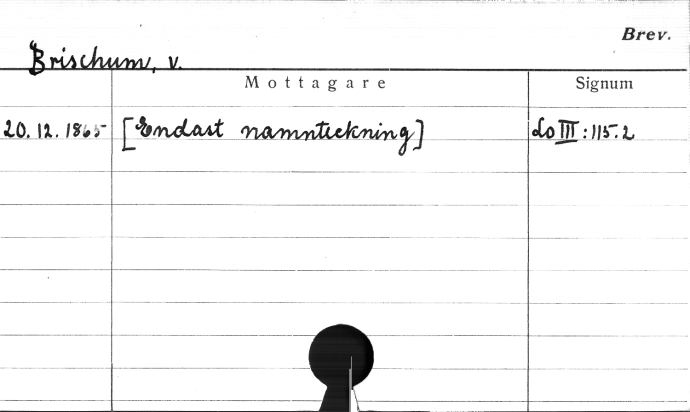 Brev.
Brischum, v.
Mottagare Signum
20. 12. 1865 [Endast namnteckning] Lo III : 115. 2